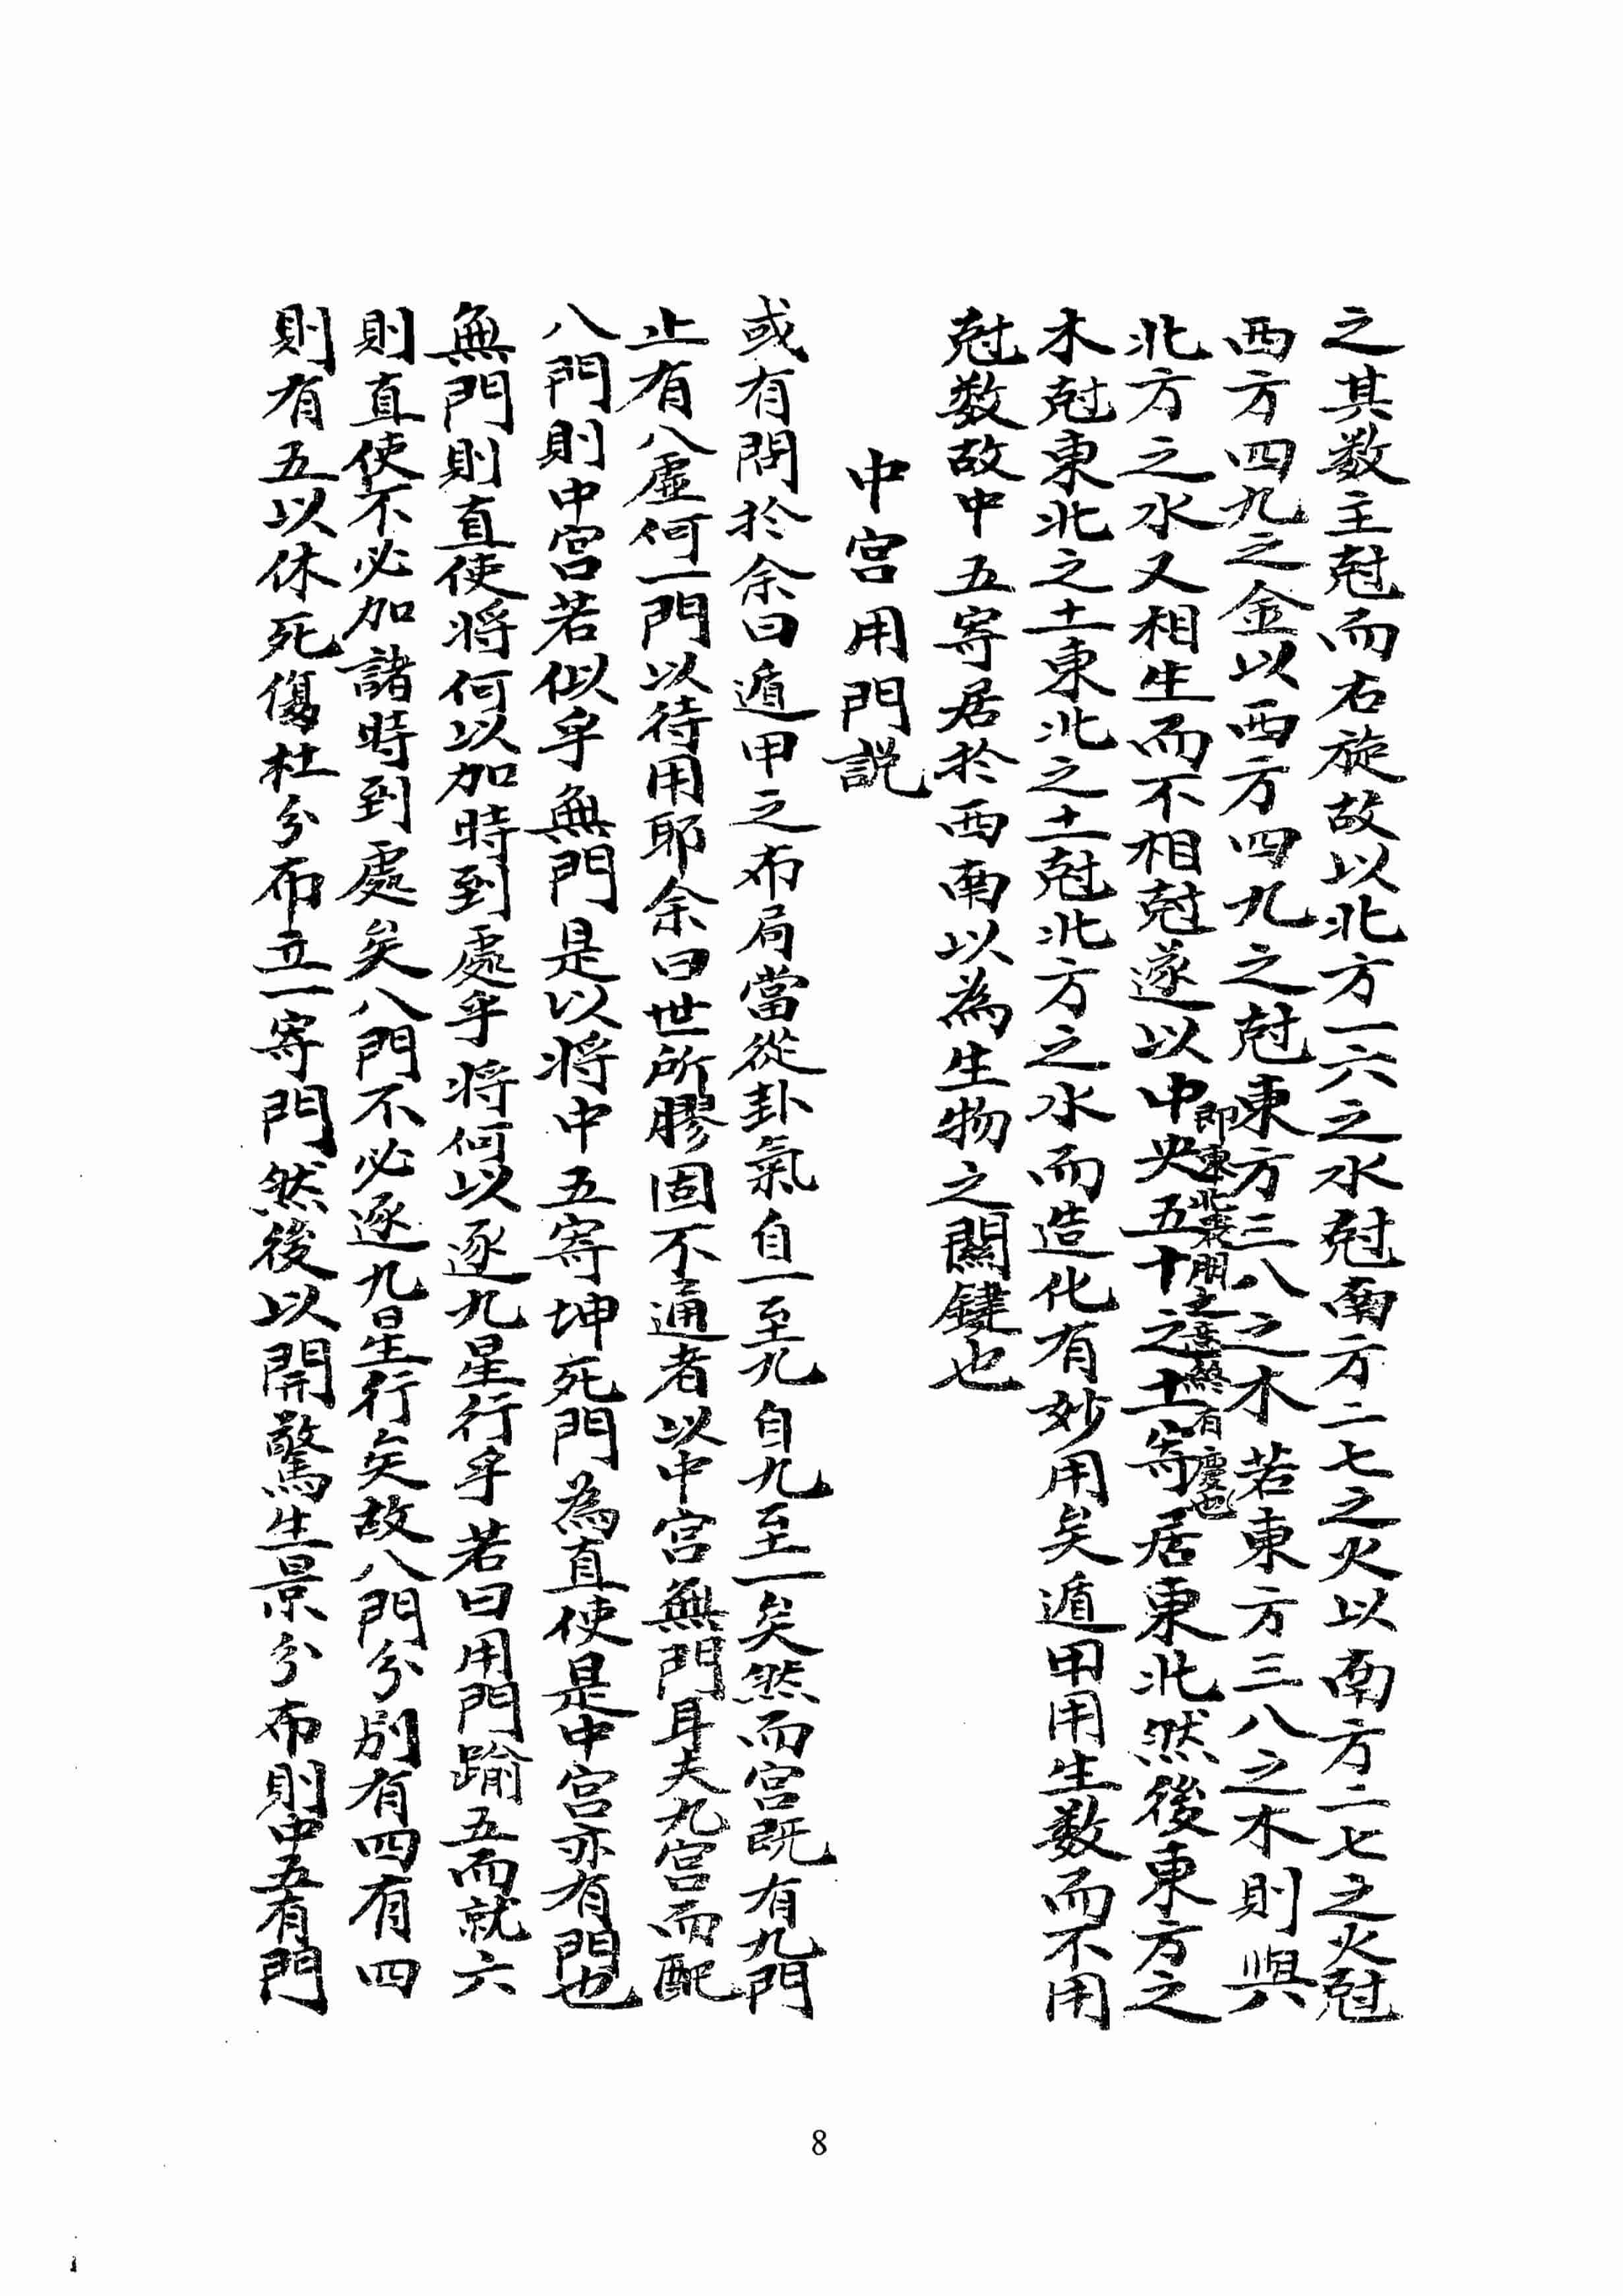 之其数主尅而右旋故以北方一六之水尅南方二七之火以南方二七之火尅
西方四九之金以西方四九之尅東方三八之木若東方三八之木則與
北方之水又相生而不相尅遂以中央五十之土寄居東北然後東方之
即東北喪朋之意終有慶也
木尅東北之土東北之土尅北方之水而造化有妙用矣遁甲用生数而不用
尅数故中五寄居於西南以為生物之關鍵也
中宮用門説
或有問於余曰遁甲之布局當從卦氣自一至九自九至一矣然而宮既有九門
止有八虛何一門以待用耶余曰世所膠固不通者以中宮無門耳夫九宮而配
八門則中宮若似乎無門是以将中五寄坤死門為直使是中宮亦有門也
無門則直使将何以加時到處乎将何以逐九星行乎若曰用門踰五而就六
則直使不必加諸時到處矣八門不必逐九星行矣故八門分別有四有四
則有五以休死傷杜分布立一寄門然後以開驚生景分布則中五有門
8